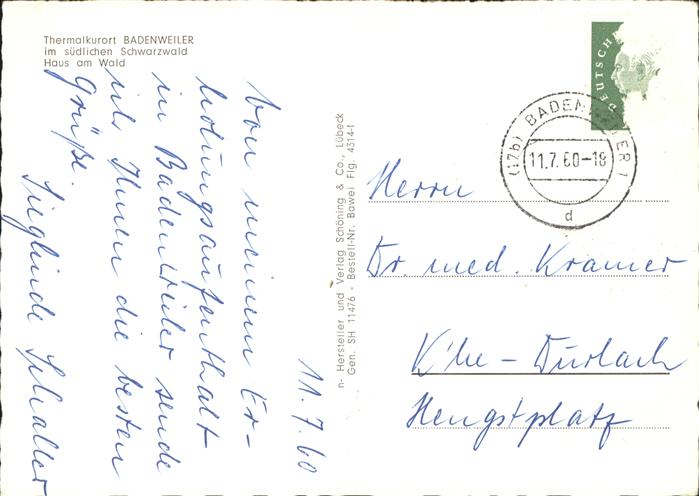 Thermalkurort BADENWEILER
im südlichen Schwarzwald
Haus am Wald
11.7.60
Von meinem Er-
holungsaufenthalt
in Badenweiler sende
ich Ihnen die besten
Grüße.
Sieglinde Schaller
n- Hersteller und Verlag Schöning & Co., Lübeck
Gen. SH 11476 - Bestell-Nr. Bawei Flg. 4314-I
DEUTSCHE
(17b) BADENWEILER
11.7.60-18
d
Herrn
Dr. med. Kramer
K'he - Durlach
Hengstplatz